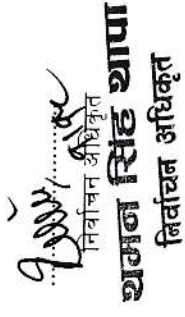 निर्वाचन अधिकृत
थमन सिंह थापा
निर्वाचन अधिकृत